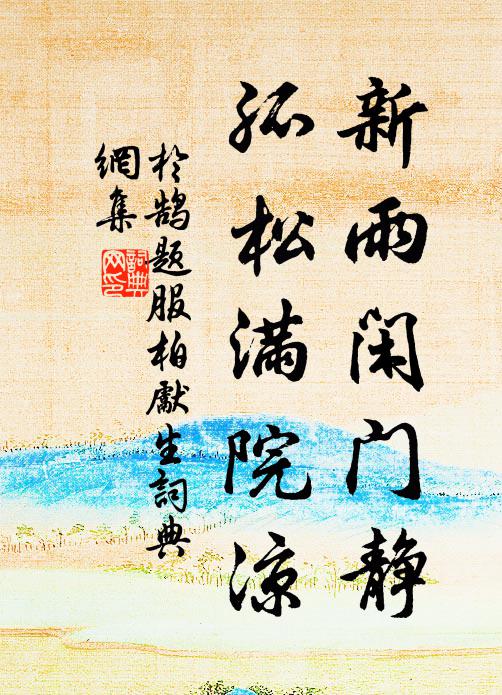 新雨闲门静
孤松满院凉
於鹄题服柏獻生詞典
網集
詞典
网印